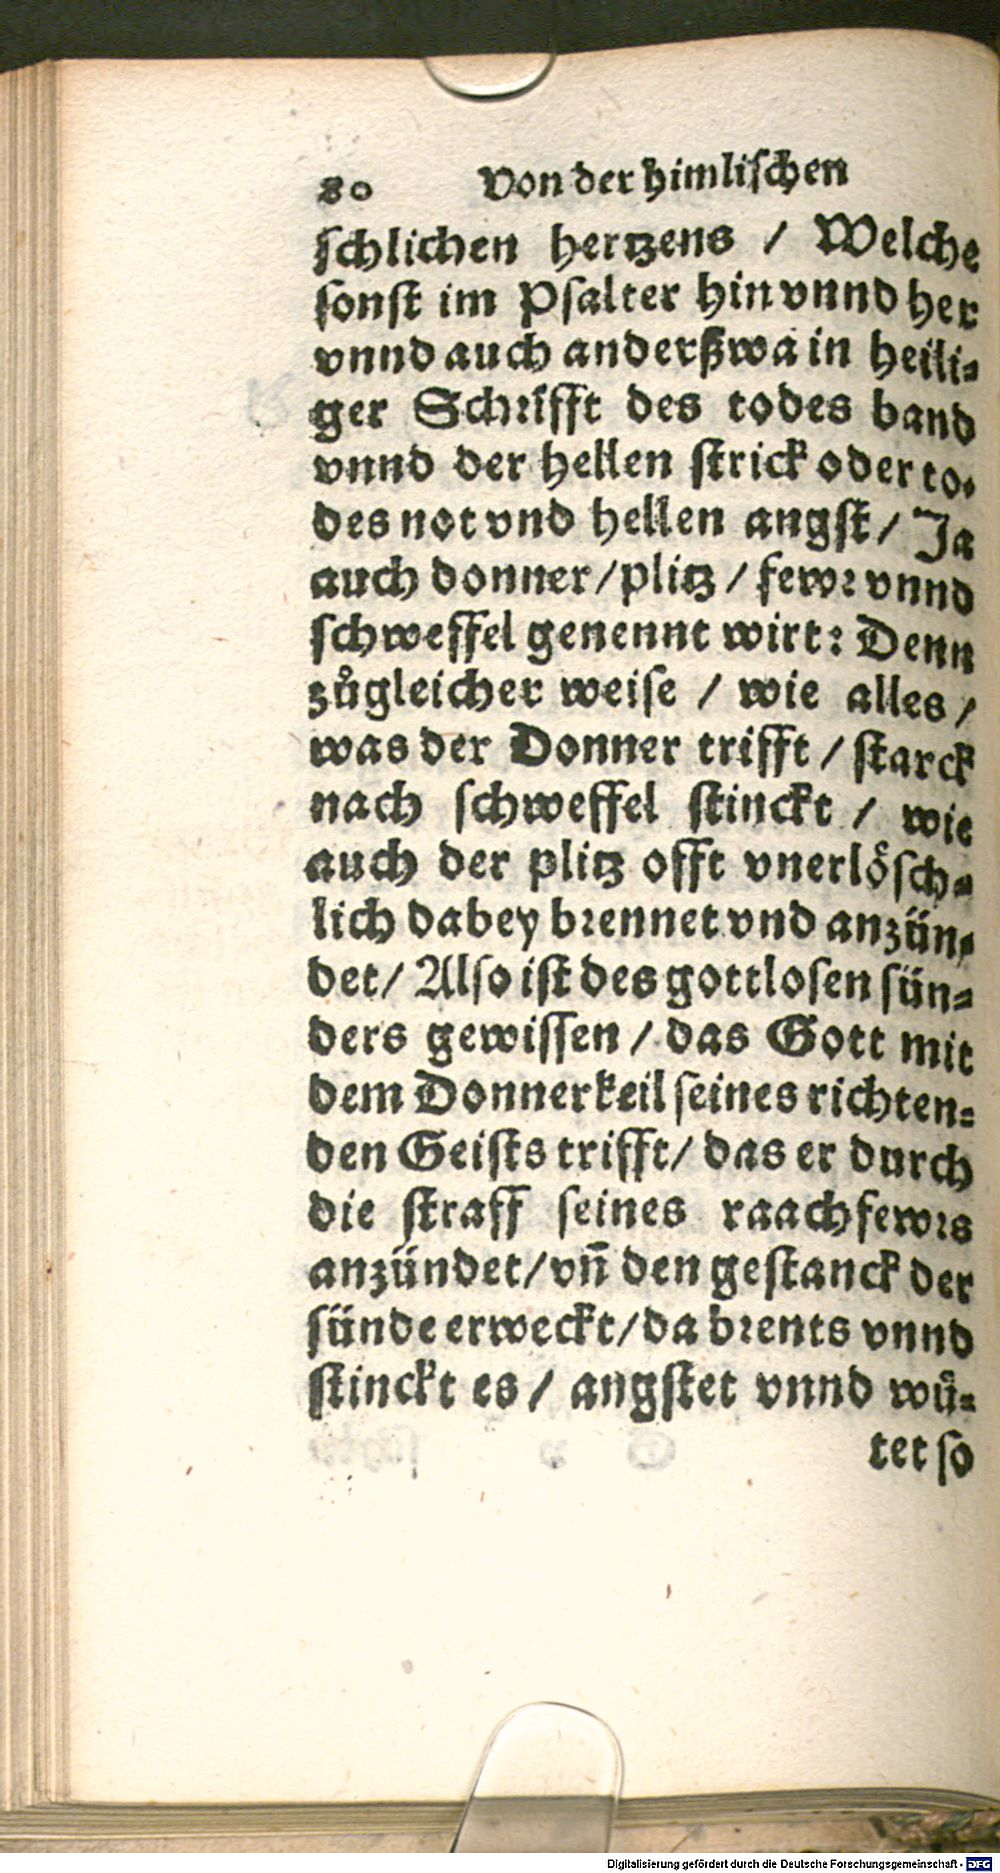 80 Von der himlischen
schlichen hertzens / Welche
sonst im Psalter hin vnnd her
vnnd auch anderßwa in heili⸗
ger Schrifft des todes band
vnnd der hellen strick oder to⸗
des not vnd hellen angst / Ja
auch donner / plitz / fewr vnnd
schweffel genennt wirt: Denn
zůgleicher weise / wie alles /
was der Donner trifft / starck
nach schweffel stinckt / wie
auch der plitz offt vnerlöſch⸗
lich dabey brennet vnd anzün⸗
det / Also ist des gottlosen sün⸗
ders gewissen / das Gott mit
dem Donnerkeil seines richten⸗
den Geists trifft / das er durch
die straff seines raachfewrs
anzündet / vn̄ den gestanck der
sünde erweckt / da brents vnnd
stinckt es / angstet vnnd wü⸗
tet so
Digitalisierung gefördert durch die Deutsche Forschungsgemeinschaft - DFG